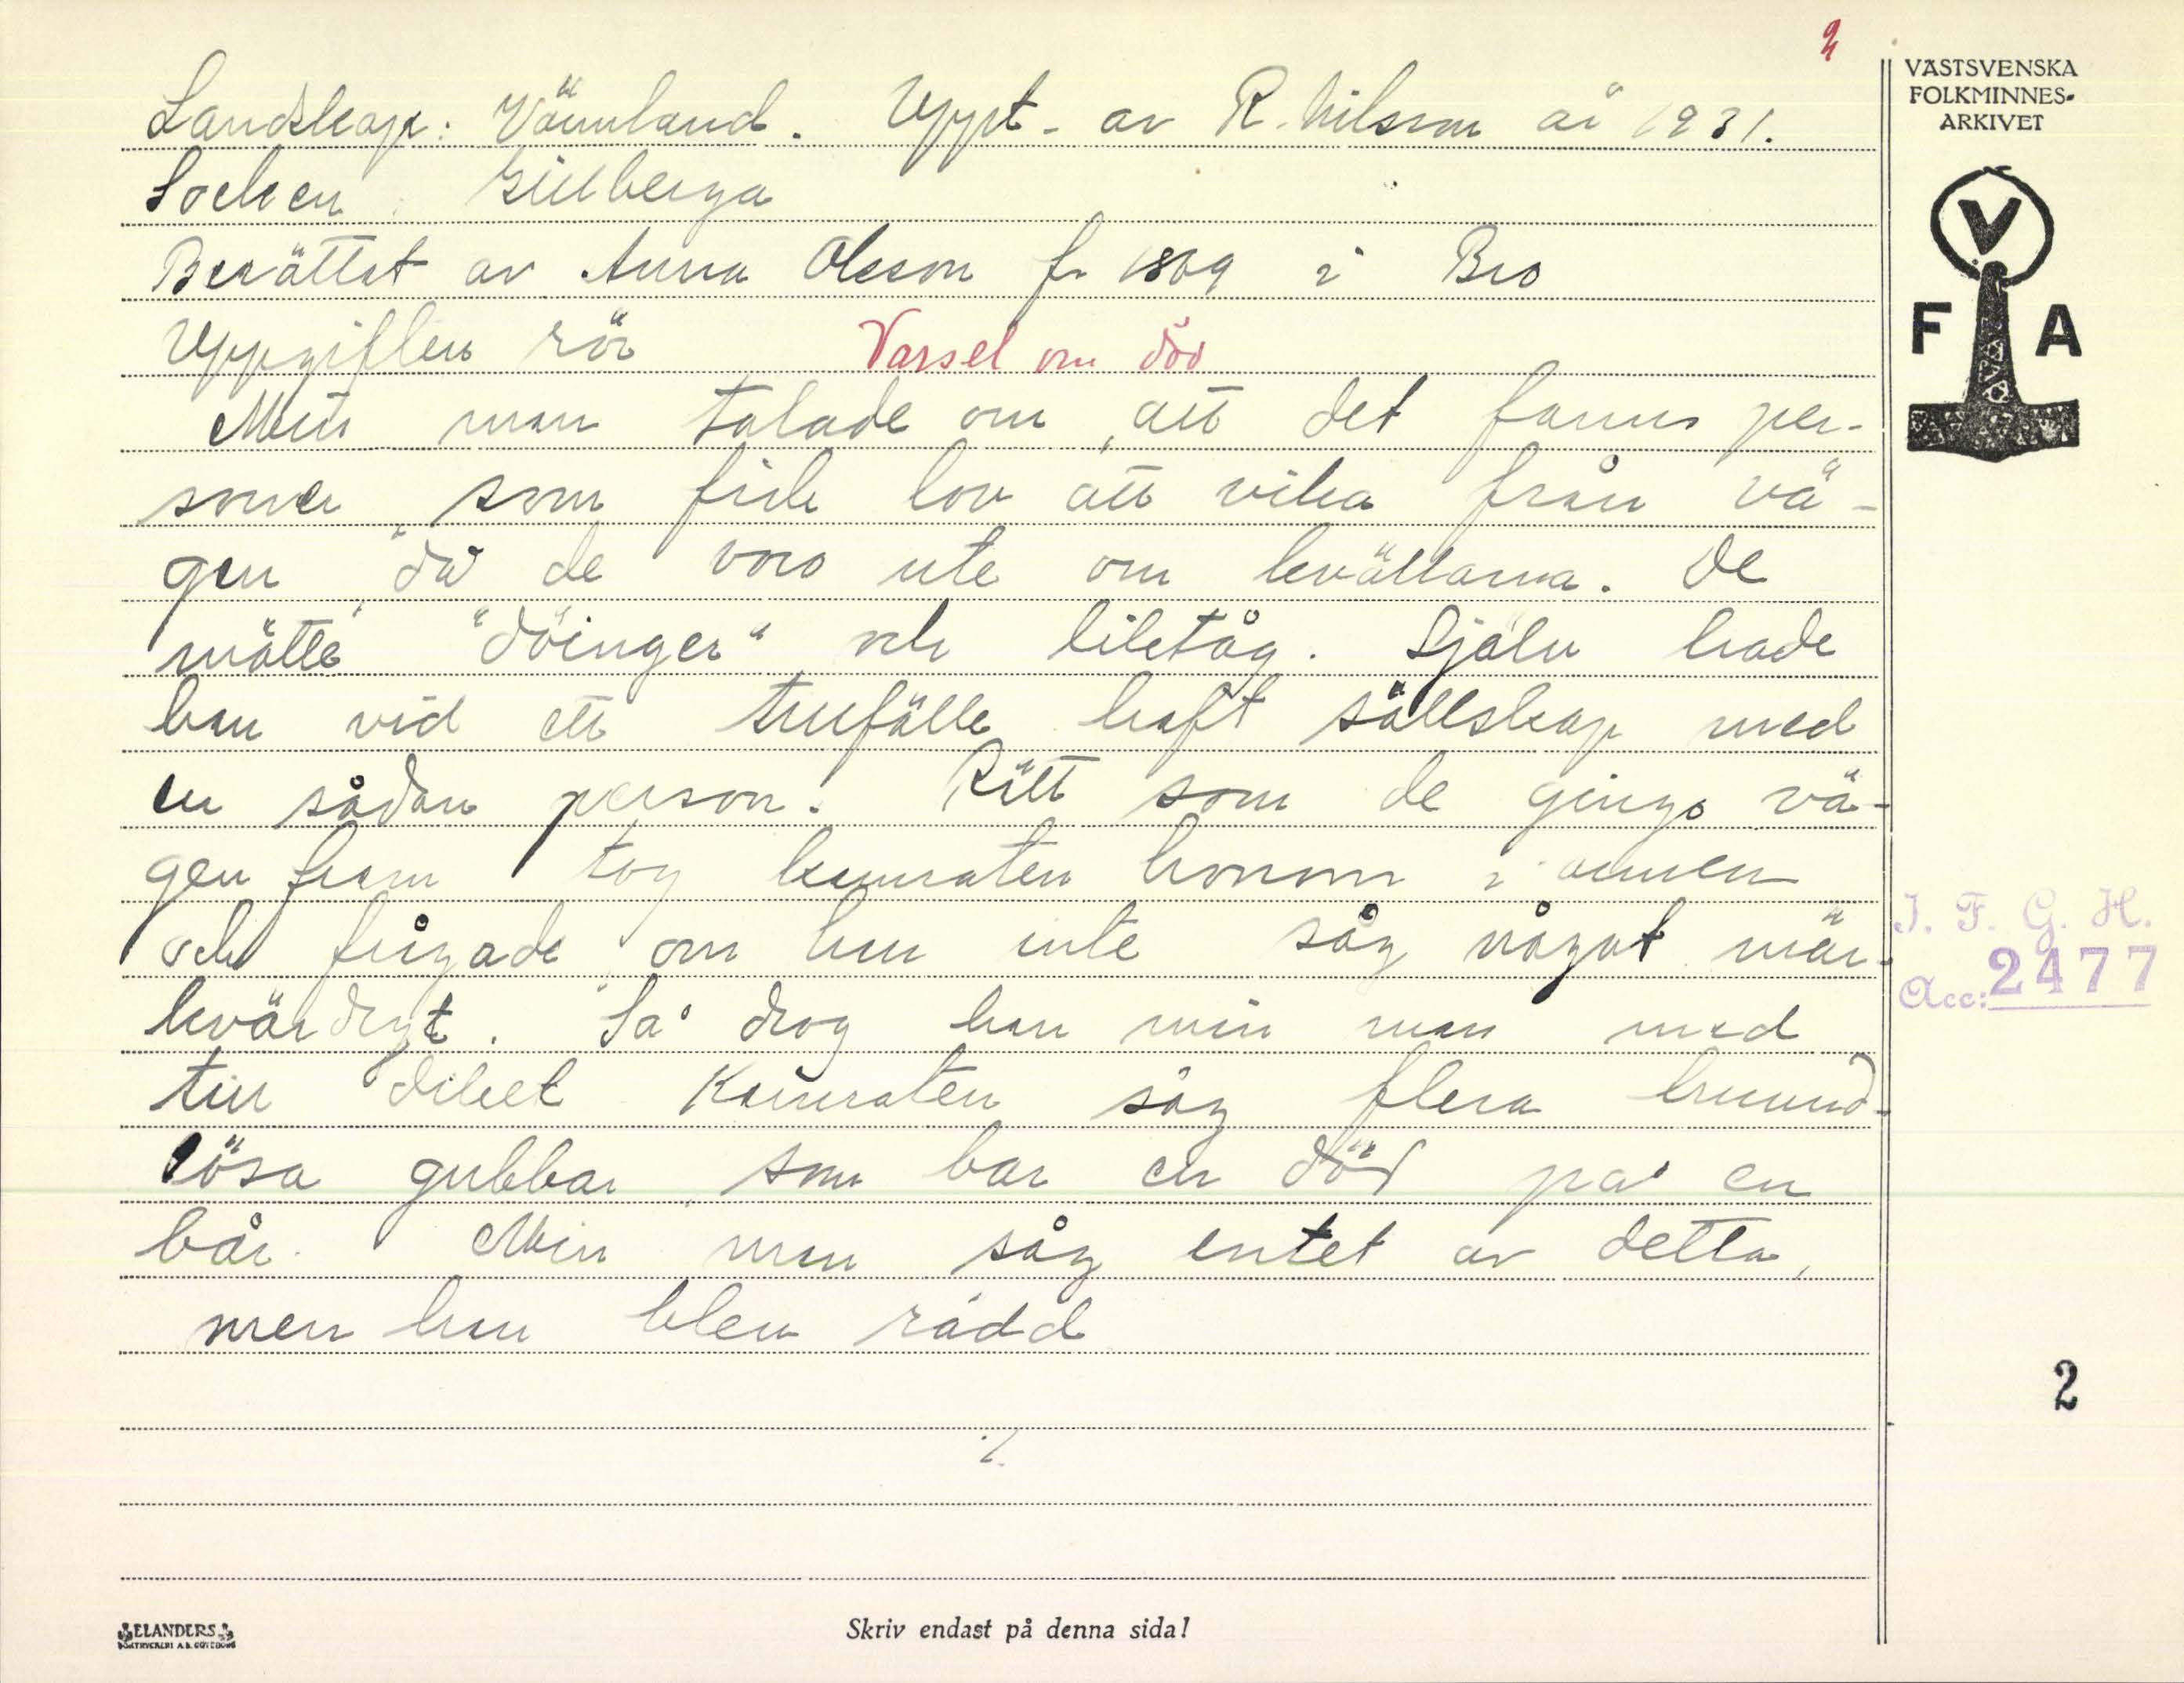 2
VÄSTSVENSKA
FOLKMINNES-
ARKIVET
V
F A
Landskap: Värmland. Uppt. av R. Nilsson år 1931.
Socken: Gillberga
Berättat av Anna Olsson f. 1869 i Bro
Uppgiften rör Varsel om död
Min man talade om, att det fanns per-
soner, som fick lov att vika från vä-
gen, då de voro ute om kvällarna. De
mötte "döinger" och liktåg. Själv hade
han vid ett tillfälle haft sällskap med
en sådan person. Rätt som de gingo vä-
gen fram tog kamraten honom i armen
och frågade, om han inte såg något mär-
kvärdigt. Så drog han min man med
till diket. Kamraten såg flera huvud-
lösa gubbar, som bar en död på en
bår. Min man såg intet av detta,
men han blev rädd
./.
I. F. G. H.
Acc: 2477
2
ELANDERS
BOKTRYCKERI A.B. GÖTEBORG
Skriv endast på denna sida!